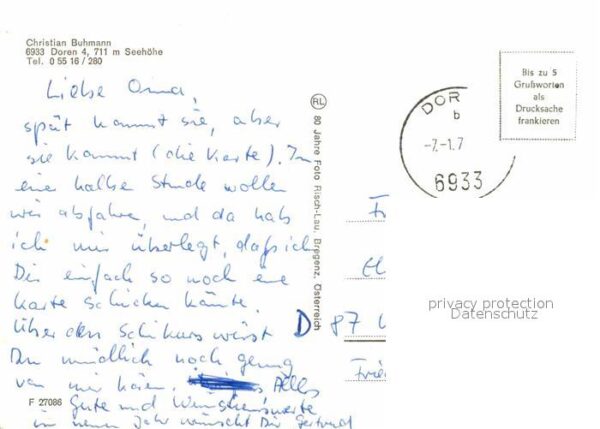 Christian Buhmann
6933 Doren 4, 711 m Seehöhe
Tel. 0 55 16 / 280
Liebe Oma,
spät kommt sie, aber
sie kommt (die Karte). In
eine halbe Stunde wollen
wir abfahre, und da hab
ich mir überlegt, daß ich
Dir einfach so noch eine
Karte schicken könnte.
Über den Schikurs wirst
Du mündlich noch genug
von mir hören. Alles
Gute und Wünschenswerte
im neuen Jahr wünscht Dir Gertraud
F 27086
RL
80 Jahre Foto Risch-Lau, Bregenz, Österreich
DOR
b
-7.-1.7
6933
Bis zu 5
Grußworten
als
Drucksache
frankieren
D 87
privacy protection
Datenschutz